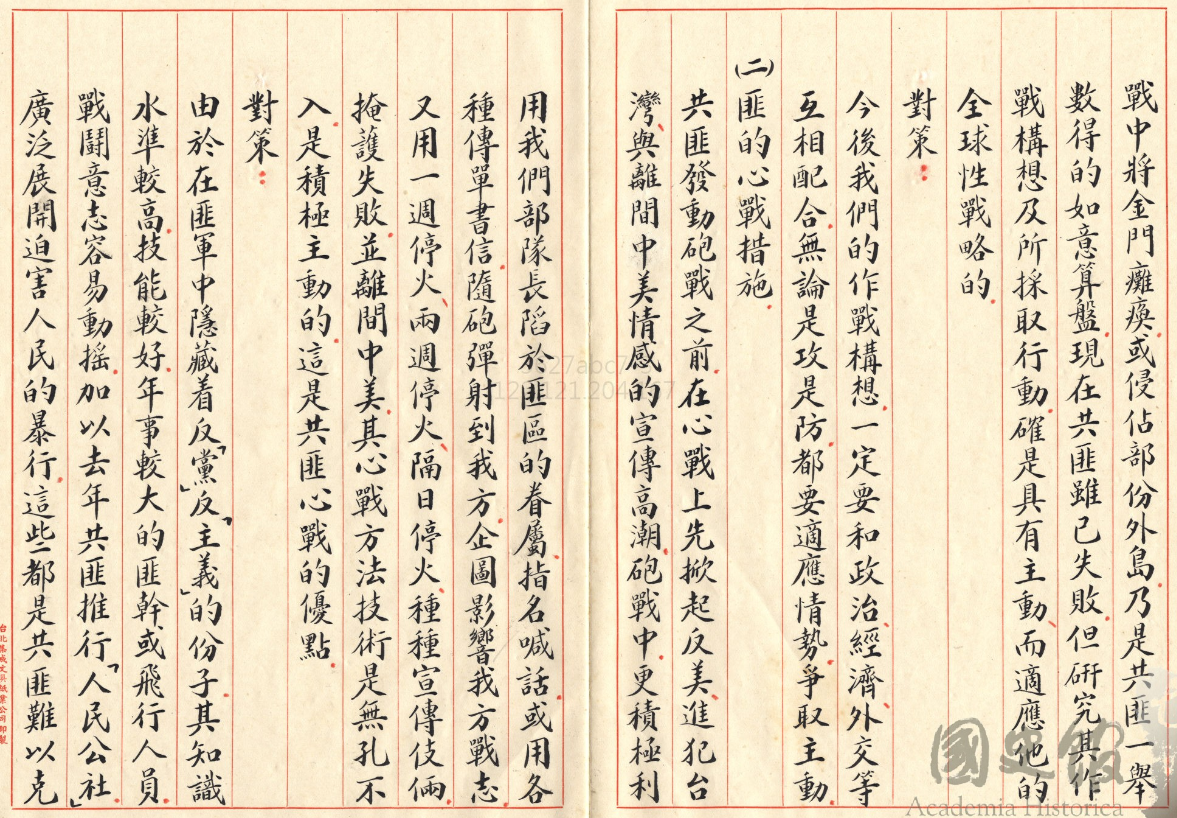 戰中將金門癱瘓或侵佔部份外島。乃是共匪一舉
數得的如意算盤。現在共匪雖已失敗。但研究其作
戰構想及所採取行動。確是具有主動、而適應他的
全球性戰略的。
對策：
今後我們的作戰構想。一定要和政治、經濟、外交等
互相配合。無論是攻是防。都要適應情勢。爭取主動。
(二)匪的心戰措施。
共匪發動砲戰之前。在心戰上先掀起反美、進犯台
灣、與離間中美情感的宣傳高潮。砲戰中。更積極利
用我們部隊長陷於匪區的眷屬。指名喊話。或用各
種傳單書信。隨砲彈射到我方。企圖影響我方戰志。
又用一週停火、兩週停火、隔日停火、種種宣傳伎倆。
掩護失敗。並離間中美。其心戰方法技術是無孔不
入。是積極主動的。這是共匪心戰的優點。
對策：
由於在匪軍中隱藏着反「黨」反「主義」的份子。其知識
水準較高。技能較好。年事較大的匪幹。或飛行人員。
戰鬪意志容易動搖。加以去年共匪推行「人民公社」。
廣泛展開迫害人民的暴行。這些都是共匪難以克
台北集成文具紙業公司印製
國史館
Academia Historica